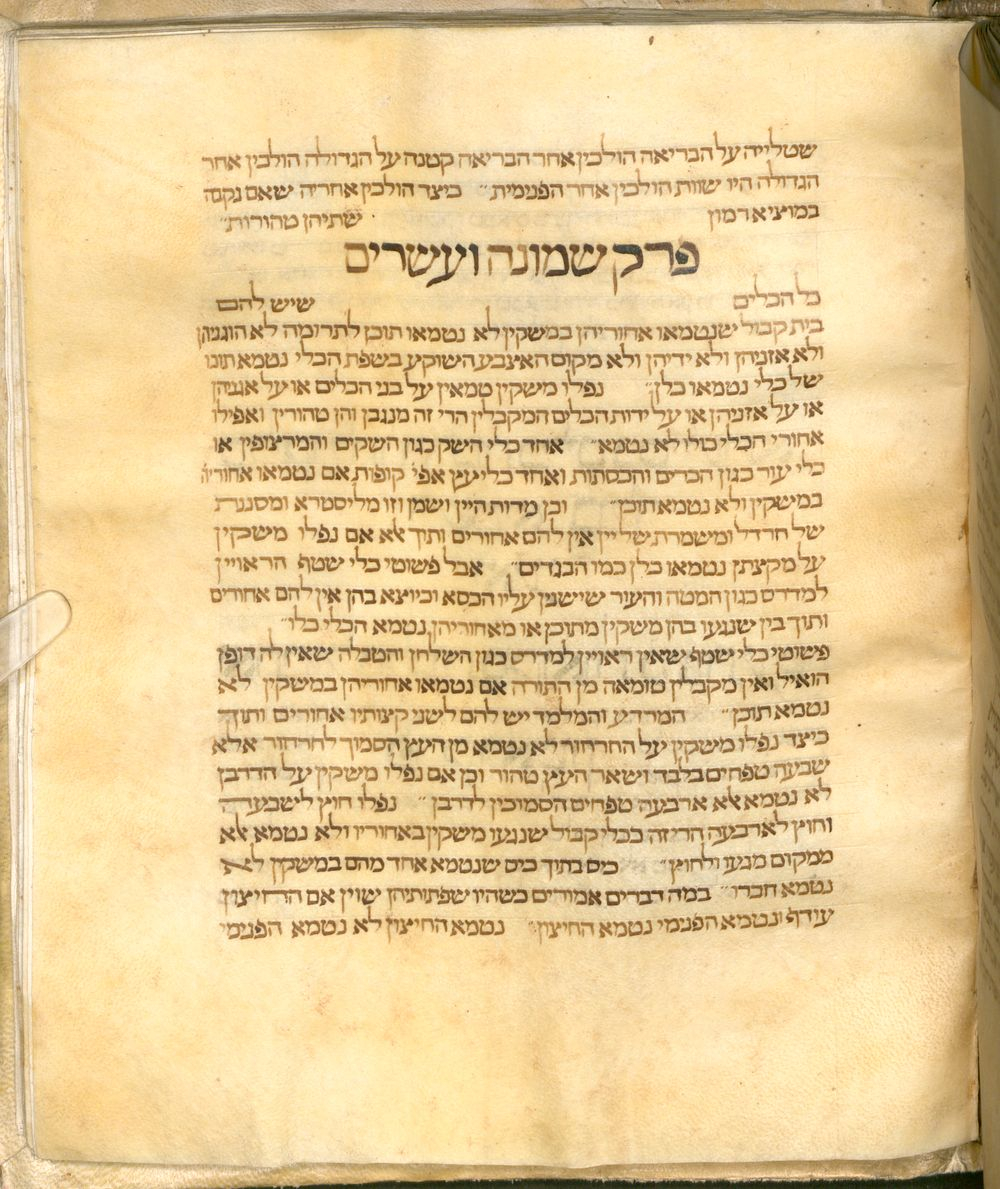 שטלייה על הבריאה הולכין אחר הבריאה קטנה על הגדולה הולכין אחר
הגדולה היו שוות הולכין אחר הפנימית״ כיצד הולכין אחריה שאם נקבה
במוציא רמון שתיהן טהורות״
פרק שמונה ועשרים
כל הכלים שיש להם
בית קבול שנטמאו אחוריהן במשקין לא נטמאו תוכן לתרומה לא הוגניהן
ולא אזניהן ולא ידיהן ולא מקום האצבע השוקע בשפת הכלי נטמא תוכו
של כלי נטמאו כלן״ נפלו משקין טמאין על בני הכלים או על אגניהן
או על אזניהן או על ידות הכלים המקבלין הרי זה מנגבן והן טהורין ואפילו
אחורי הכלי כולו לא נטמא״ אחד כלי השק כגון השקים והמרצופין או
כלי עור כגון הכרים והכסתות ואחד כלי עץ אפי׳ קופות אם נטמאו אחוריה
במשקין ולא נטמא תוכן״ וכן מדות היין ושמן וזו מליסטרא ומסננת
של חרדל ומשמרת של יין אין להם אחורים ותוך אלא אם נפלו משקין
על מקצתן נטמאו כלן כמו הבגדים״ אבל פשוטי כלי שטף הראויין
למדרס כגון המטה והעור שישנין עליו הכסא וכיוצא בהן אין להם אחורים
ותוך בין שנגעו בהן משקין מתוכן או מאחוריהן נטמא הכלי כלו״
פשוטי כלי שטף שאין ראויין למדרס כגון השלחן והטבלה שאין לה דופן
הואיל ואין מקבלין טומאה מן התורה אם נטמאו אחוריהן במשקין לא
נטמא תוכן״ המרדע והמלמד יש להם לשני קצותיו אחורים ותוך
כיצד נפלו משקין על החרחור לא נטמא מן העץ הסמוך לחרחור אלא
שבעה טפחים בלבד ושאר העץ טהור וכן אם נפלו משקין על הדרבן
לא נטמא אלא ארבעה טפחים הסמוכין לדרבן״ נפלו חוץ לשבעה
וחוץ לארבעה הרי זה ככלי קבול שנגעו משקין באחוריו ולא נטמא אלא
ממקום מגעו ולחוץ״ כיס בתוך כיס שנטמא אחד מהם במשקין לא
נטמא חברו״ במה דברים אמורים כשהיו שפתותיהן שוין אם הרחיצון
עודף ונטמא הפנימי נטמא החיצון״ נטמא החיצון לא נטמא הפנימי